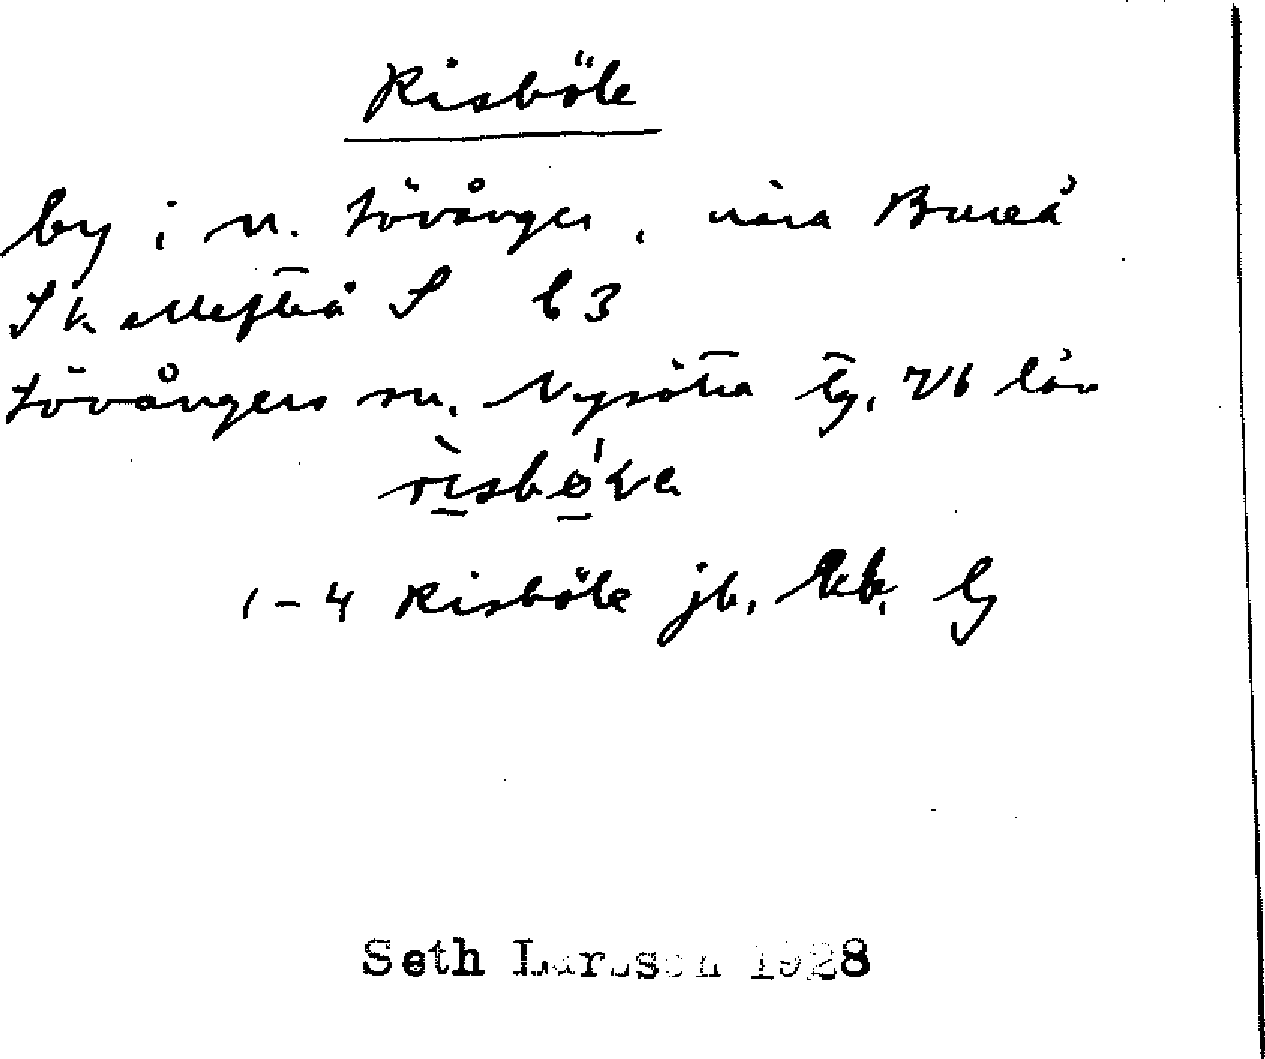 Risböle
by i n. Lövånger, nära Bureå
Skellefteå S b3
Lövångers sn. Nysätra tg, Vb län
rìsbǿla
1-4 Risböle jb, kb, tg
Seth Larsson 1928